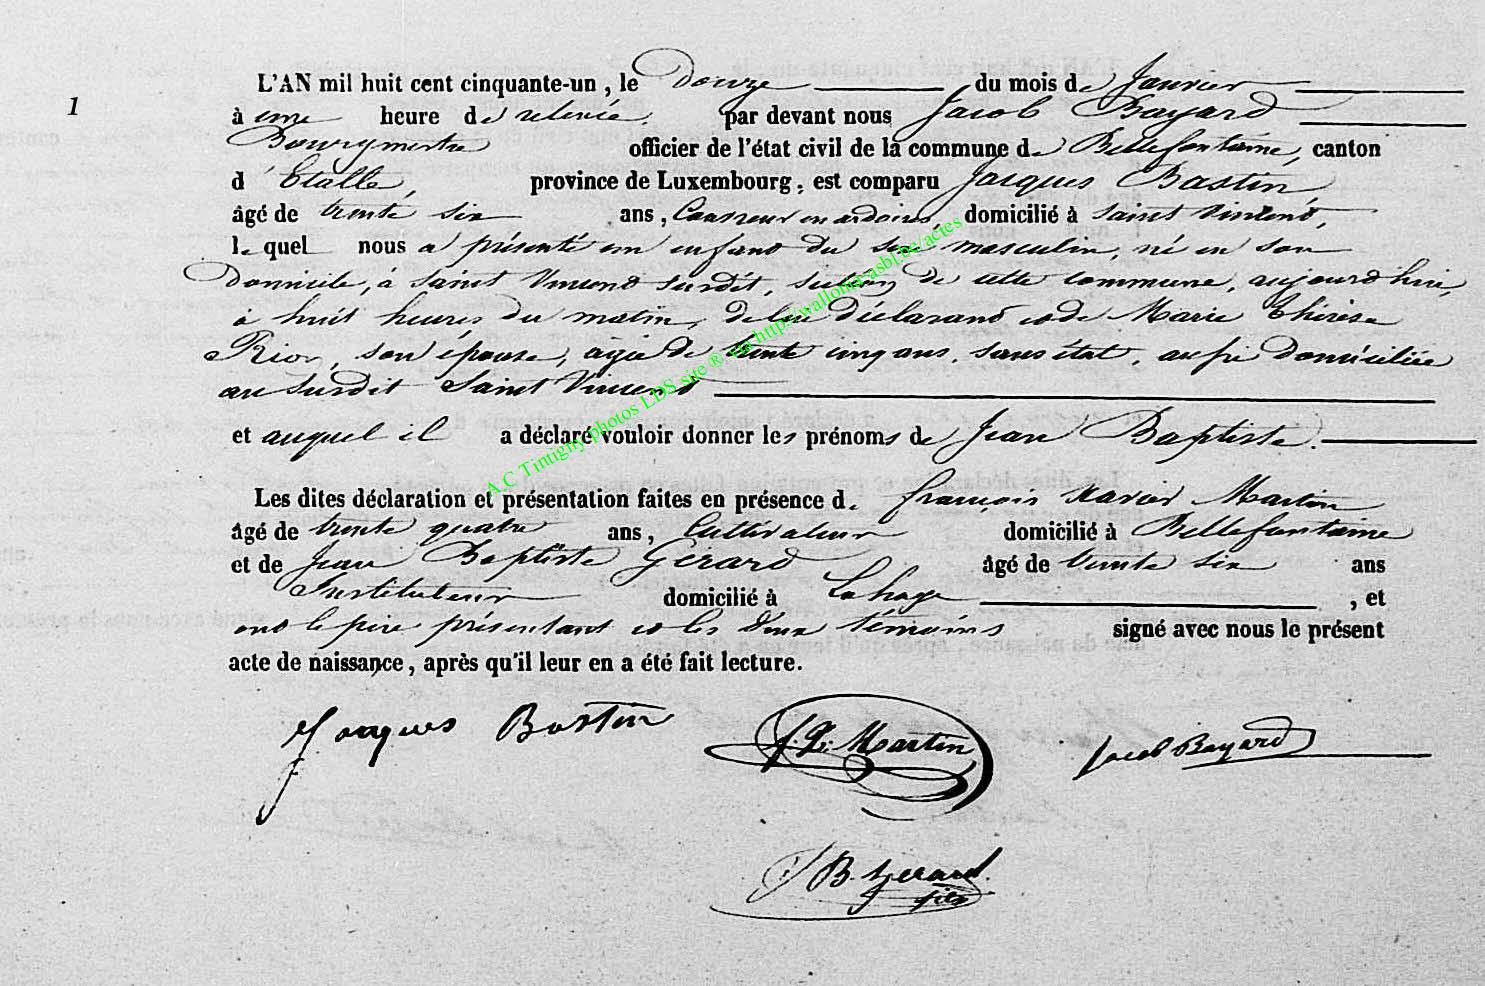 1
L'AN mil huit cent cinquante-un, le Douze du mois de Janvier
à une heure de relevée, par devant nous Jacob Bayard
Bourgmestre officier de l'état civil de la commune de Bellefontaine, canton
d'Etalle, province de Luxembourg, est comparu Jacques Bastin,
âgé de trente six ans, Couvreur en ardoises domicilié à Saint Vincent,
lequel nous a présenté un enfant du sexe masculin, né en son
Domicile, à Saint Vincent surdit, section de cette commune, aujourd'hui,
à huit heures du matin, de lui déclarant et de Marie Thérèse
Rion, son épouse, agée de trente cinq ans, sans état, aussi domiciliée
au surdit Saint Vincent
et auquel il a déclaré vouloir donner les prénoms de Jean Baptiste.
Les dites déclaration et présentation faites en présence de françois Xavier Martin
âgé de trente quatre ans, Cultivateur domicilié à Bellefontaine
et de Jean Baptiste Gérard âgé de trente six ans
Instituteur domicilié à Lahage, et
ont le père présentant et les deux témoins signé avec nous le présent
acte de naissance, après qu'il leur en a été fait lecture.
Jacques Bastin
f X. Martin
Jacob Bayard
J B. Gerard
fils
A.C Tintigny photos LDS site ® via http://wallonia-asbl.be/actes